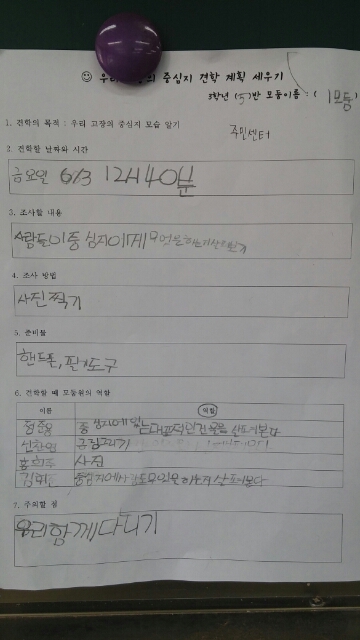 ☺ 우리 의 중심지 견학 계획 세우기
3학년 (5)반 모둠이름 : ( 1모둠
1. 견학의 목적 : 우리 고장의 중심지 모습 알기
주민센터
2. 견학할 날짜와 시간
금요일 6/3 12시40분
3. 조사할 내용
사람들이 중심지에게 무엇을하는지살펴보기
4. 조사 방법
사진찍기
5. 준비물
핸드폰, 필기도구
6. 견학할 때 모둠원의 역할
이름 역할
중심지에 있는대표적인건물을 살펴본다
사진
중심지에서 무엇을하는지 살펴본다
7. 주의할 점
우리함께다니기